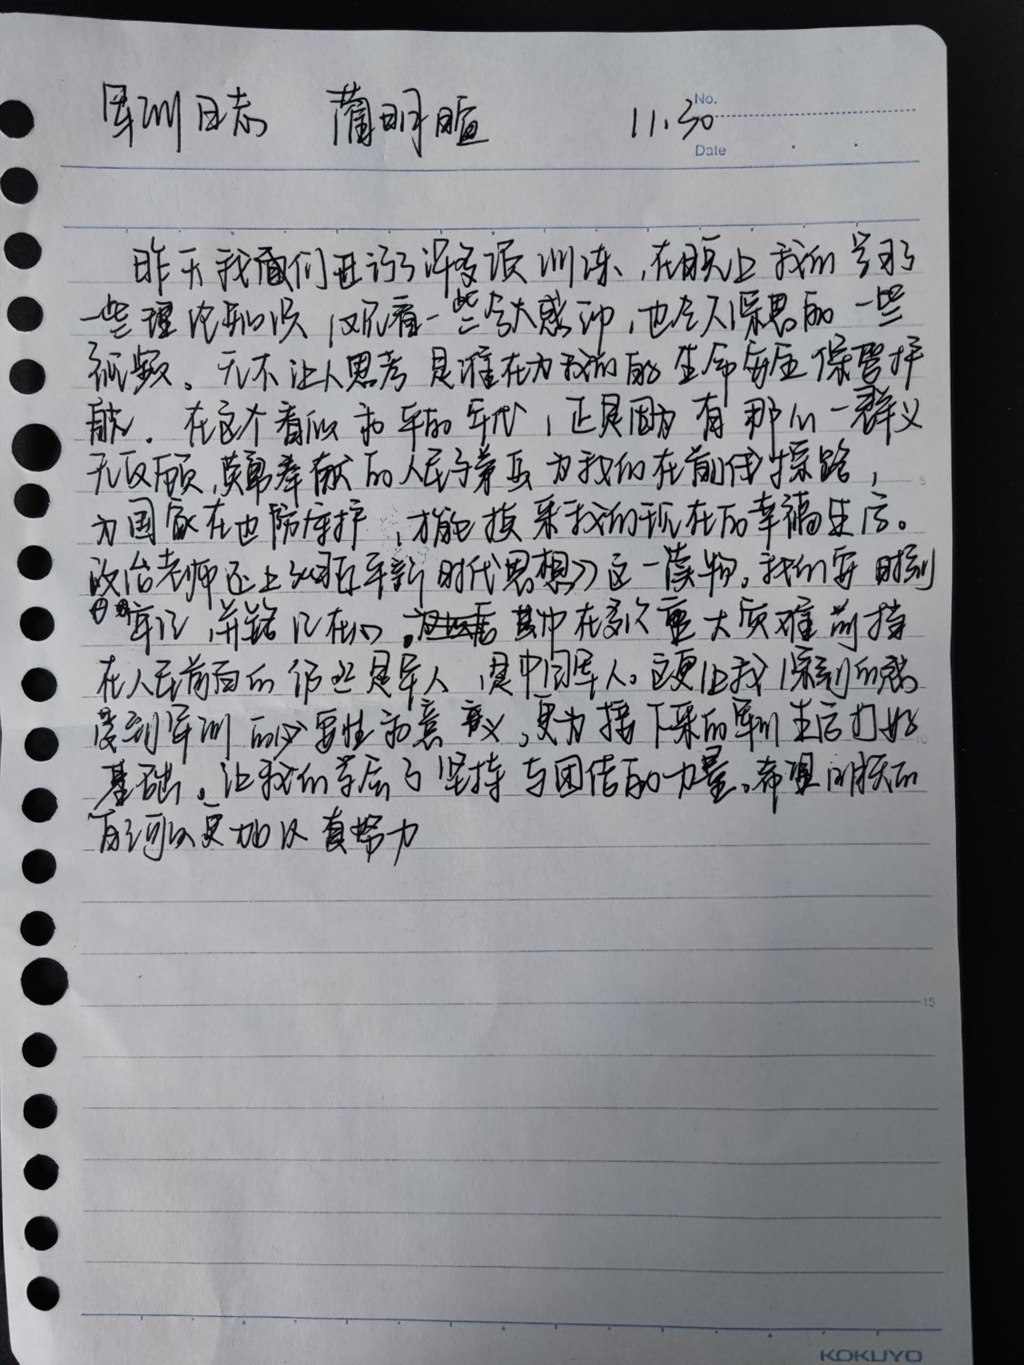 军训日志 蔺明 11.30
No.
Date
昨天我们进行了许多项训练、在晚上我们学习了
一些理论知识,观看一些令人感动,也令人深思的一些
视频。无不让人思考是谁在为我们的生命安全保驾护
航.在这个看似和平的年代,正是因为有那么一群义
无反顾,英勇奉献的人民子弟兵为我们在前线探路,
为国家在边防守护,才能换来我们现在的幸福生活。
政治老师还上《习近平新时代思想》这一读物。我们要时刻
牢记,并铭记在心。其中在多次重大灾难前挡
在人民前面的仍然是军人,是中国军人。这更让我深刻的感
受到军训的必要性和意义,更为接下来的军训生活打好
基础。让我们学会了坚持与团结的力量。希望明天的
自己可以更加认真努力
KOKUYO